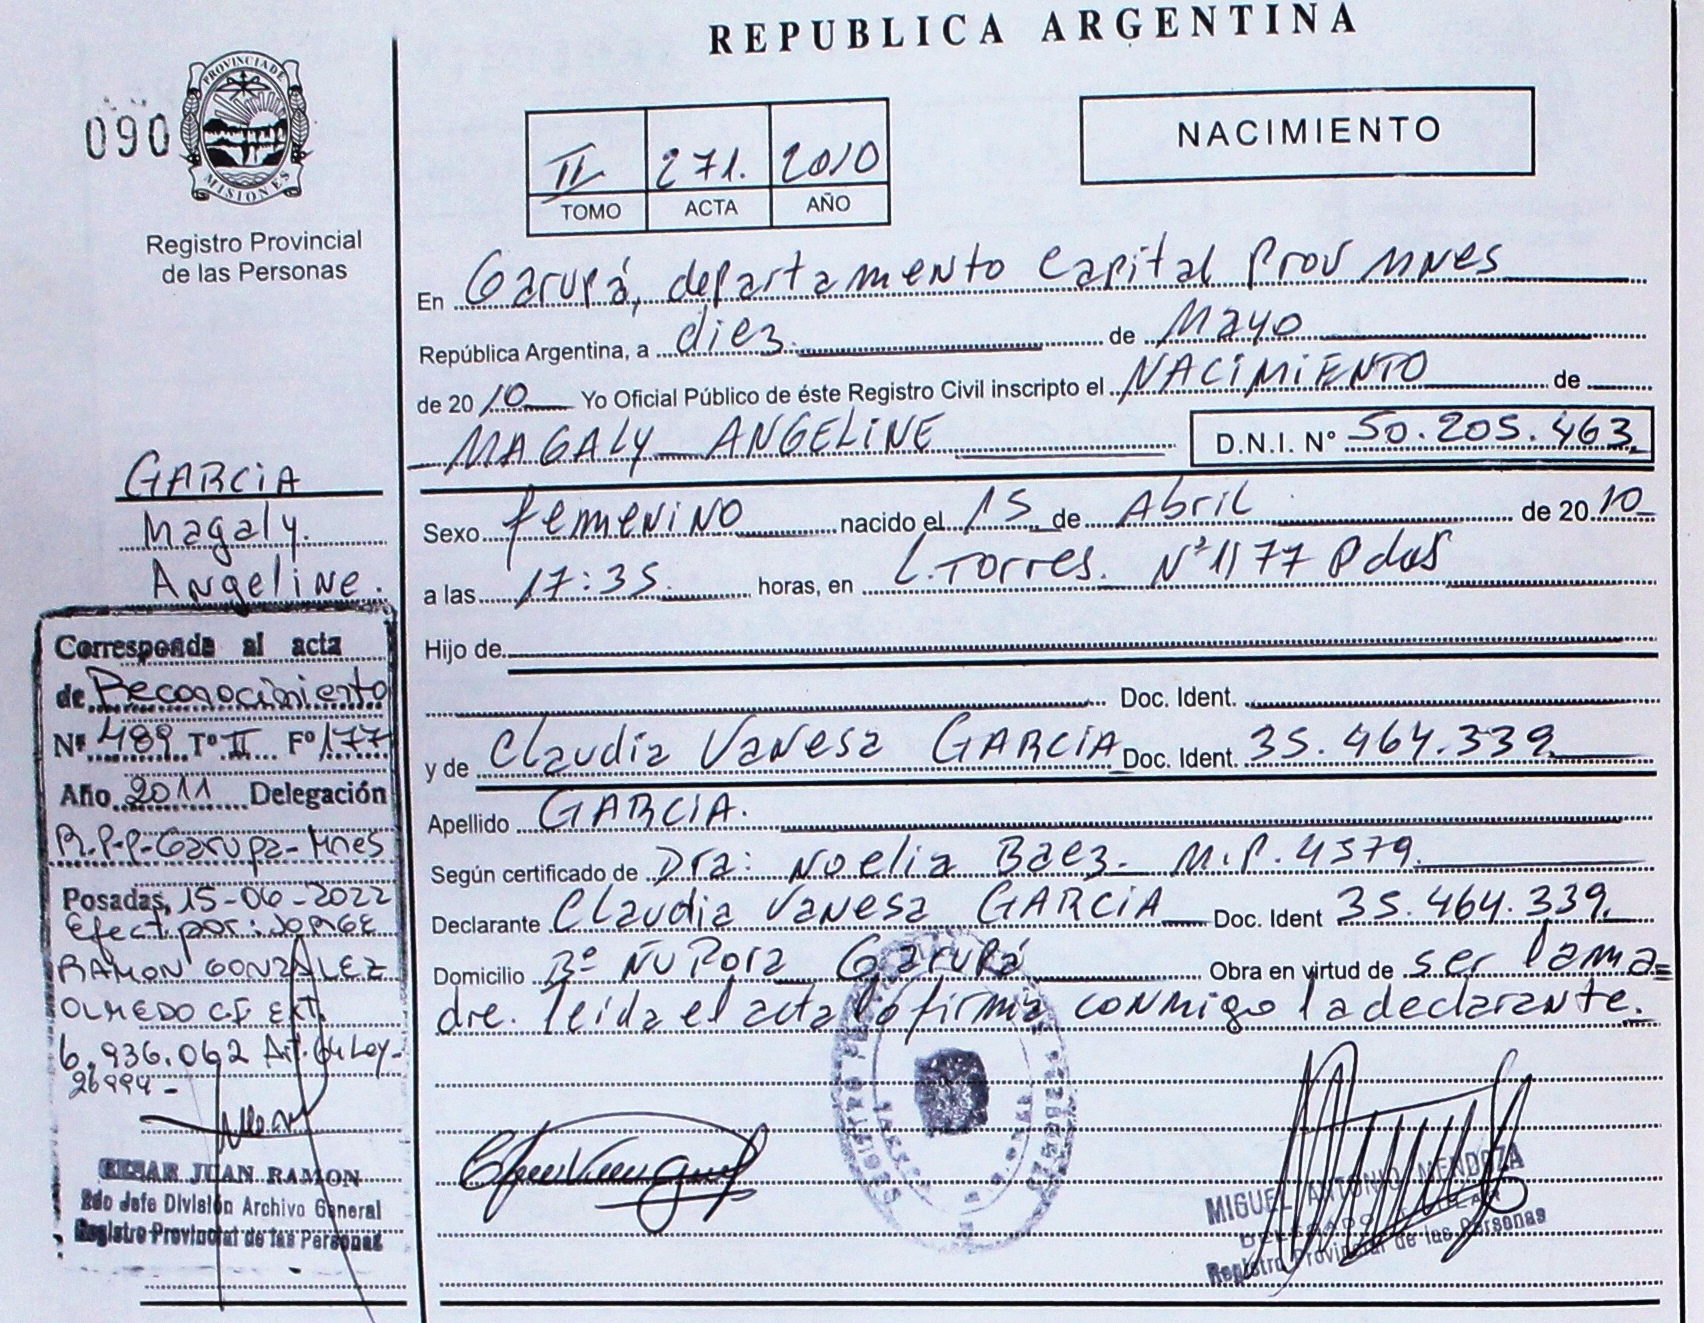 REPUBLICA ARGENTINA
090
PROVINCIA DE
MISIONES
Registro Provincial
de las Personas
II 271. 2010
TOMO ACTA AÑO
NACIMIENTO
En Garupá, departamento Capital Prov Mnes
República Argentina, a diez de Mayo
de 2010 Yo Oficial Público de éste Registro Civil inscripto el NACIMIENTO de
MAGALY ANGELINE D.N.I. Nº 50.205.463
Sexo femenino nacido el 15 de Abril de 2010
a las 17:35 horas, en L. Torres. Nº 1177 Pdas
Hijo de
Doc. Ident.
y de Claudia Vanesa GARCIA Doc. Ident. 35.464.339
Apellido GARCIA.
Según certificado de Dra: Noelia Baez. M.P. 4579.
Declarante Claudia Vanesa GARCIA Doc. Ident 35.464.339.
Domicilio Bº Ñu Pora Garupá Obra en virtud de ser la ma=
dre. leida el acta lo firma conmigo la declarante.
GARCIA
Magaly.
Angeline.
Corresponde al acta
de Reconocimiento
Nº 489 Tº II Fº 177
Año 2011 Delegación
R.P.P-Garupa-Mnes
Posadas, 15-06-2022
Efect por: JORGE
RAMON GONZALEZ
OLMEDO C.I EXT.
6.936.062 Art. 64 Ley-
26994-
CESAR JUAN RAMON
2do Jefe División Archivo General
Registro Provincial de las Personas
MIGUEL ANTONIO MENDOZA
DELEGADO TITULAR
Registro Provincial de las Personas